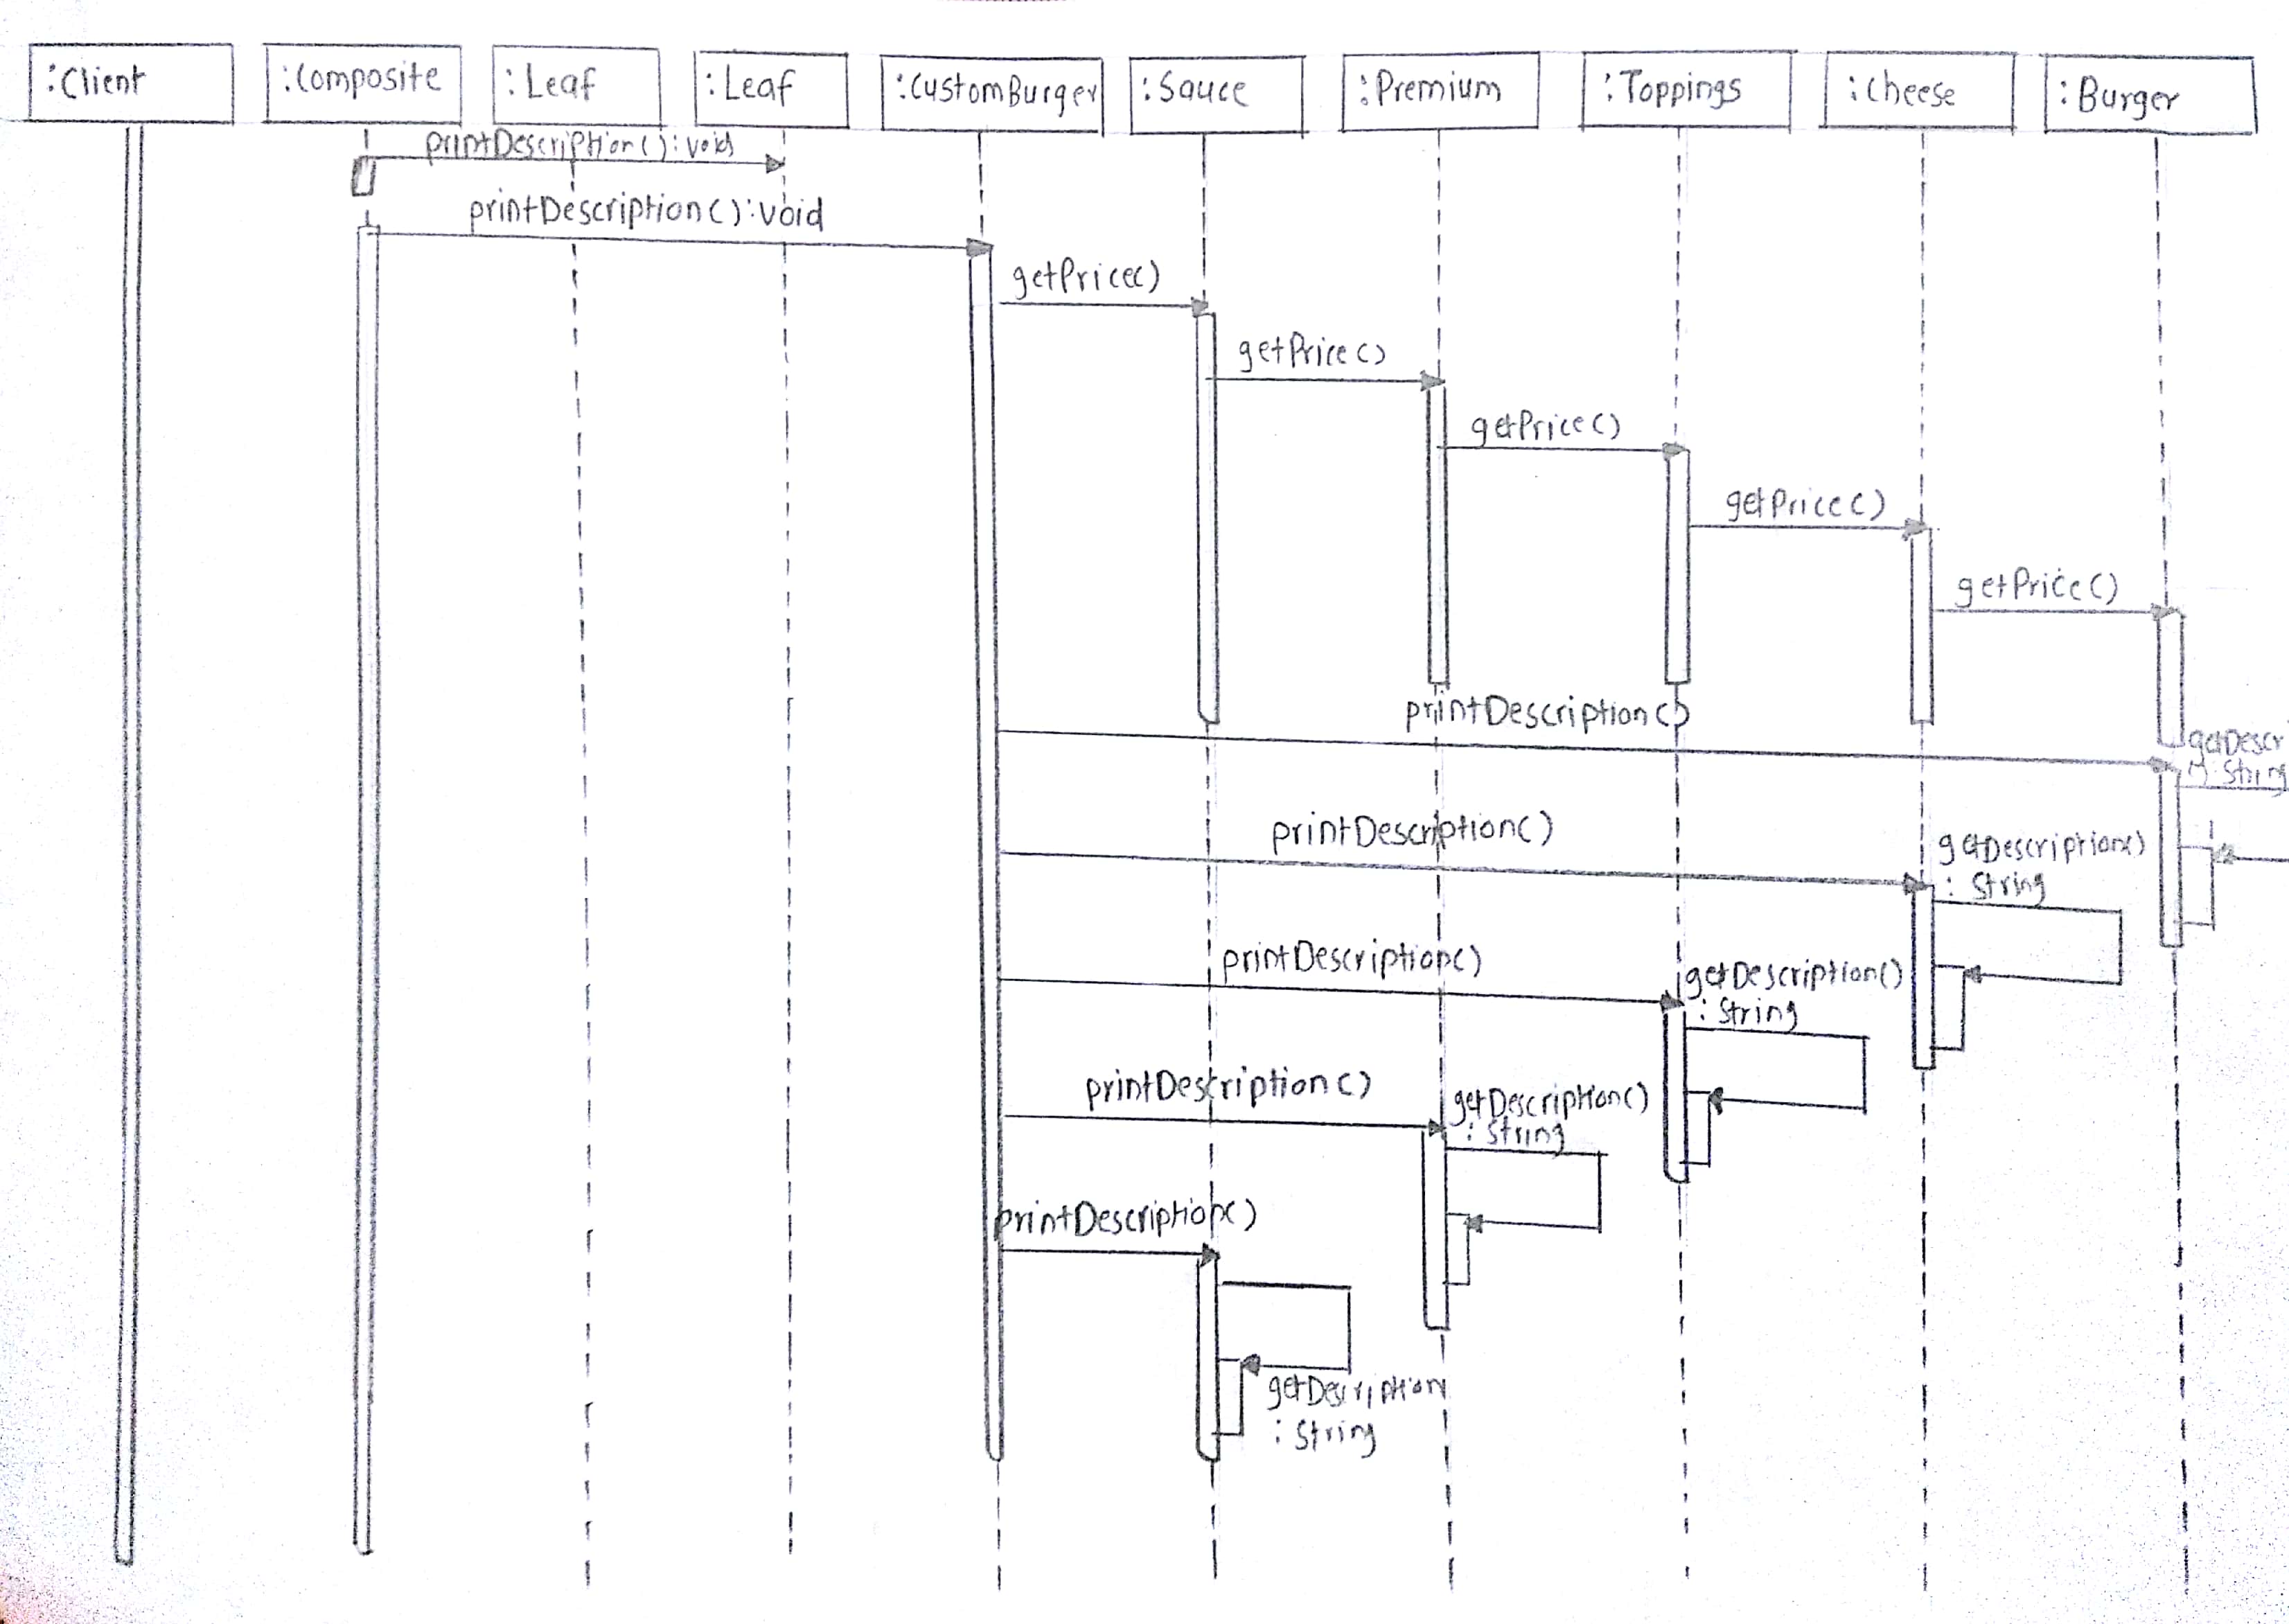 :Client
:Composite
:Leaf
:Leaf
:CustomBurger
:Sauce
:Premium
:Toppings
:Cheese
:Burger
printDescription():void
printDescription():void
getPrice()
getPrice()
getPrice()
getPrice()
getPrice()
printDescription()
getDescr
): String
printDescription()
getDescription()
: String
printDescription()
getDescription()
: String
printDescription()
getDescription()
: String
printDescription()
getDescription
: String